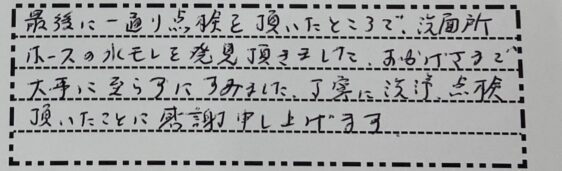 最後に一通り点検を頂いたところで、洗面所
ホースの水モレを発見頂きました、おかげさまで
大事に至らずにすみました、丁寧に洗浄、点検
頂いたことに感謝申し上げます